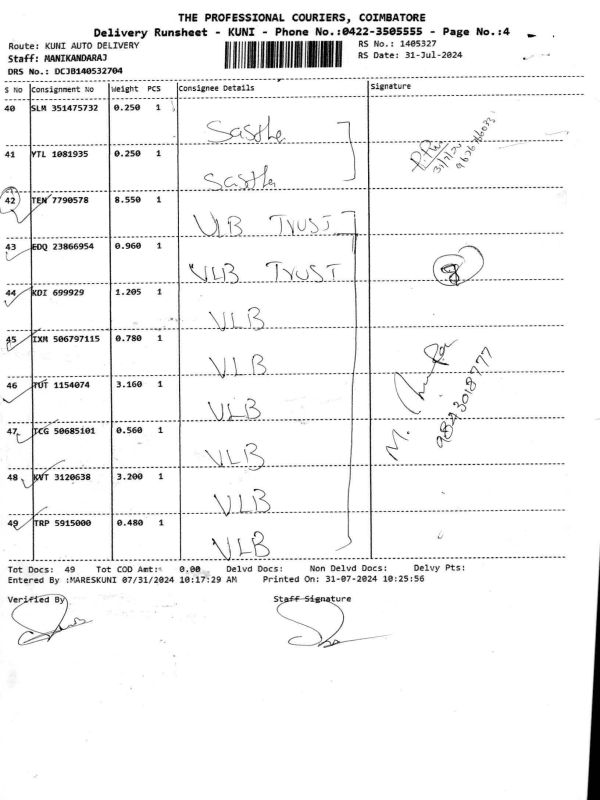 THE PROFESSIONAL COURIERS, COIMBATORE
Delivery Runsheet - KUNI - Phone No.:0422-3505555 - Page No.:4
Route: KUNI AUTO DELIVERY
RS No.: 1405327
Staff: MANIKANDARAJ
RS Date: 31-Jul-2024
DRS No.: DCJB140532704
S No Consignment No Weight PCS Consignee Details Signature
40 SLM 351475732 0.250 1 Sasthe
41 YTL 1081935 0.250 1 Sasthe
31/7/24
42 TEN 7790578 8.550 1 VLB TRUST
43 EDQ 23866954 0.960 1 VLB TRUST
8
44 KDI 699929 1.205 1 VLB
45 IXM 506797115 0.780 1 VLB
46 TUT 1154074 3.160 1 VLB
M.
9843018777
47 TCG 50685101 0.560 1 VLB
48 KVT 3120638 3.200 1 VLB
49 TRP 5915000 0.480 1 VLB
Tot Docs: 49 Tot COD Amt: 0.00 Delvd Docs: Non Delvd Docs: Delvy Pts:
Entered By :MARESKUNI 07/31/2024 10:17:29 AM Printed On: 31-07-2024 10:25:56
Verified By Staff Signature